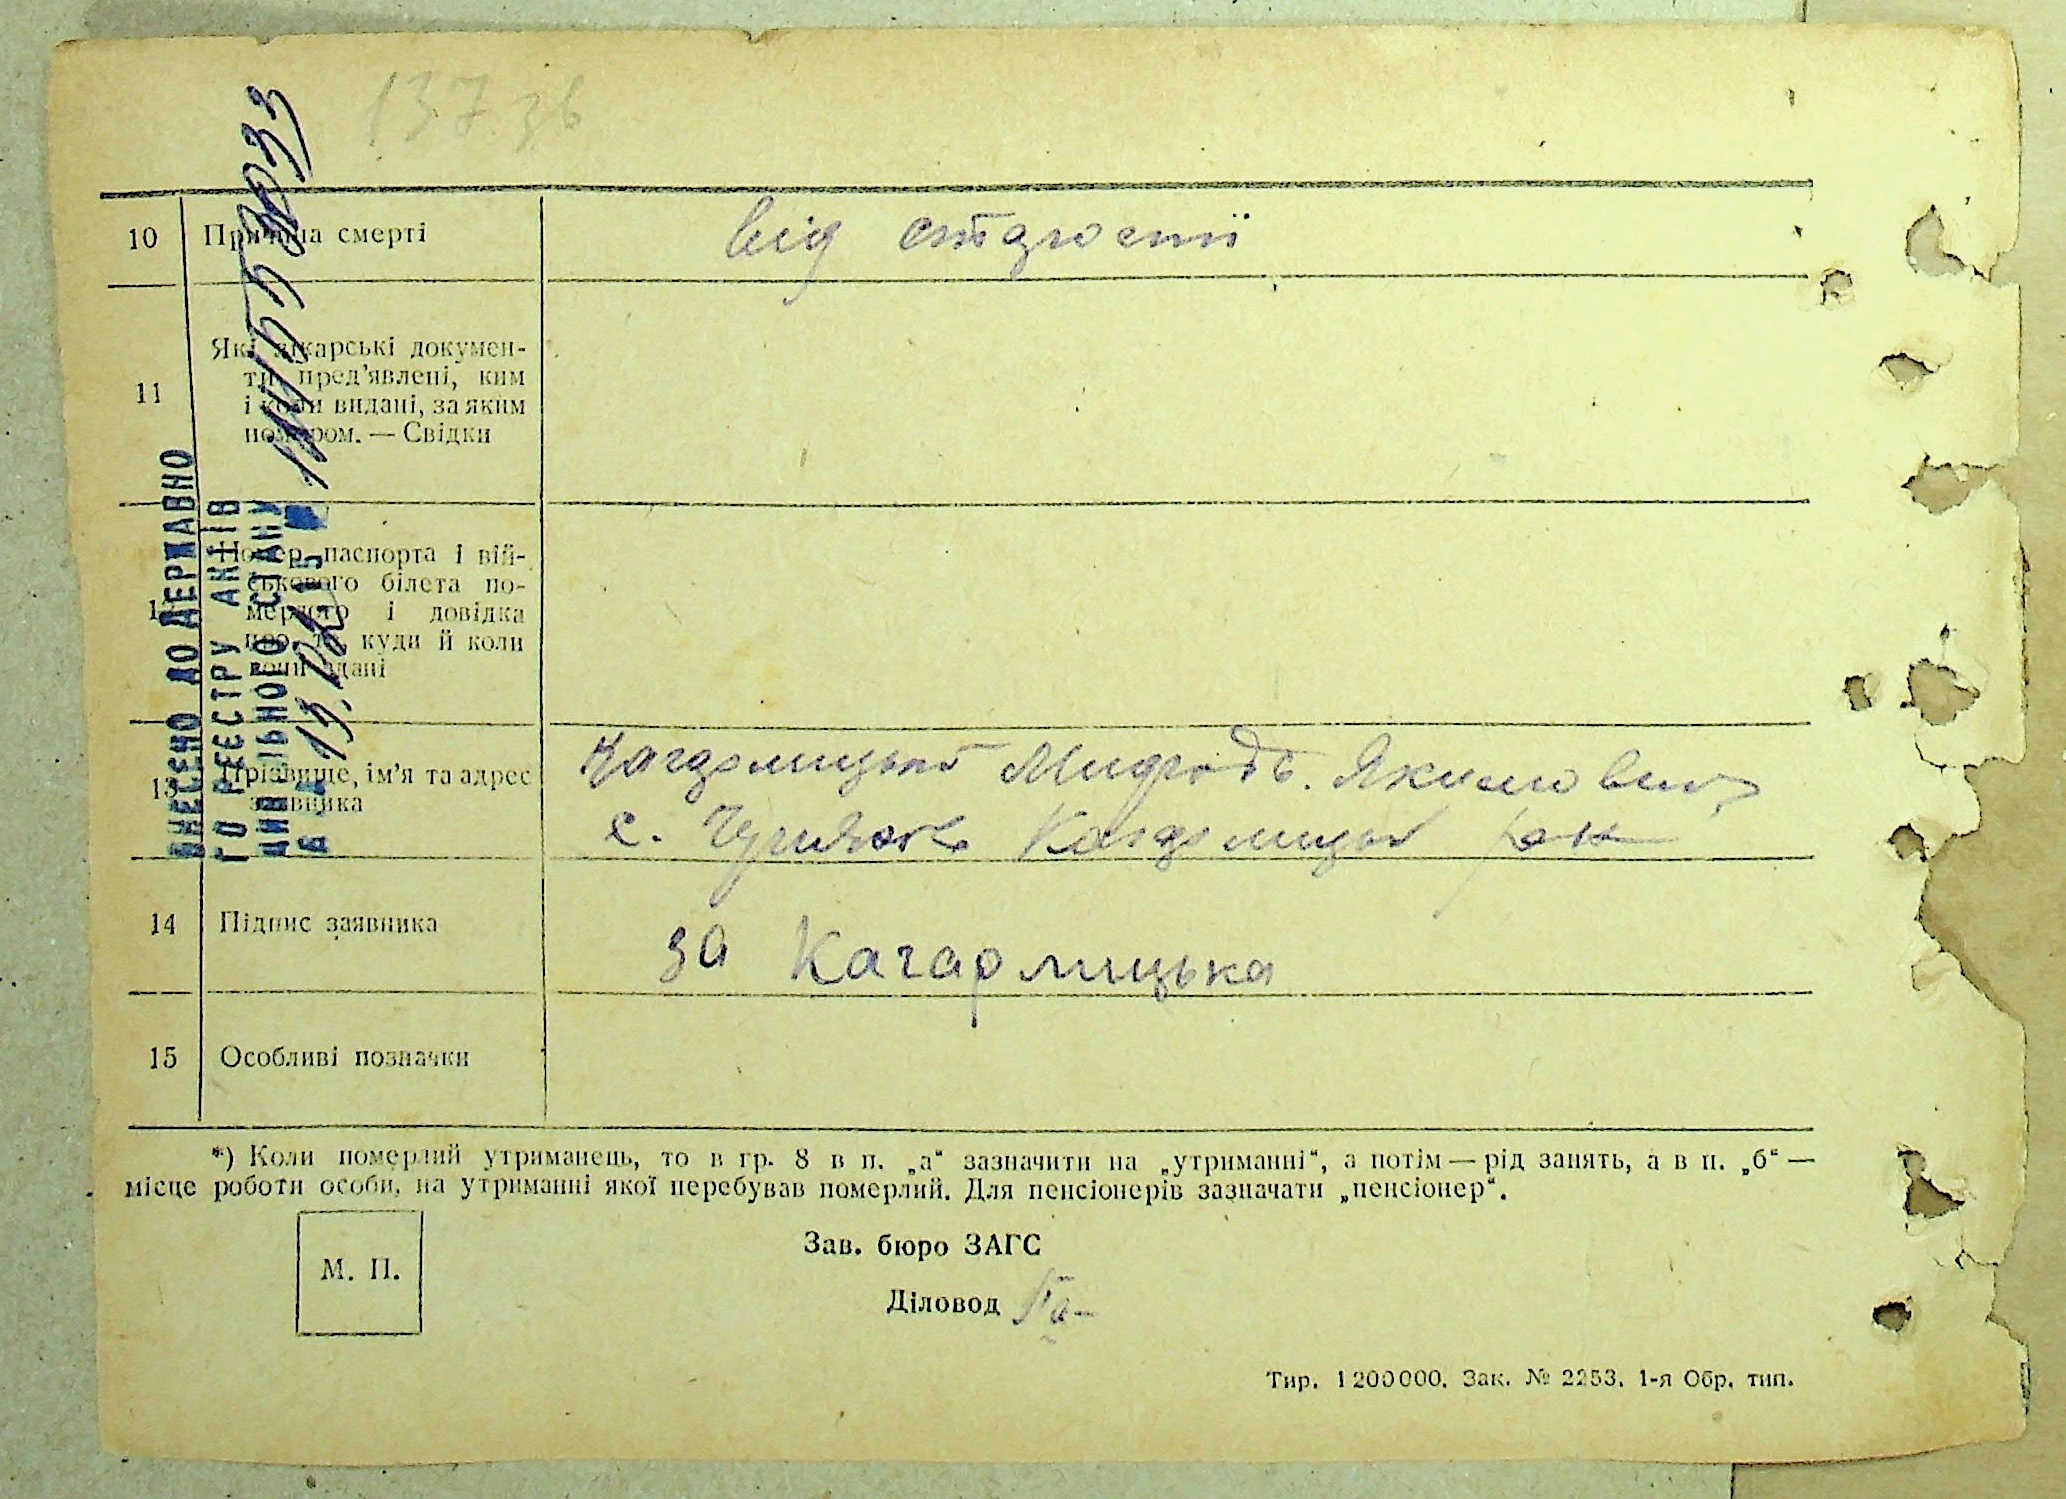 137 зв
10 Причина смерті
від старости
11 Які лікарські докумен-
ти пред'явлені, ким
і коли видані, за яким
номером. — Свідки
Номер паспорта і вій-
ськового білета по-
мерлого і довідка
про те, куди й коли
вони здані
13 Прізвище, ім'я та адрес
заявника
Якимович
с.
14 Підпис заявника
за Кагарлицька
15 Особливі позначки
ВНЕСЕНО ДО ДЕРЖАВНО
ГО РЕЄСТРУ АКТІВ
ЦИВІЛЬНОГО СТАНУ
*) Коли померлий утриманець, то в гр. 8 в п. „а“ зазначити на „утриманні“, а потім — рід занять, а в п. „б“ —
місце роботи особи, на утриманні якої перебував померлий. Для пенсіонерів зазначати „пенсіонер“.
М. П.
Зав. бюро ЗАГС
Діловод
Тир. 1200000. Зак. № 2253. 1-я Обр. тип.